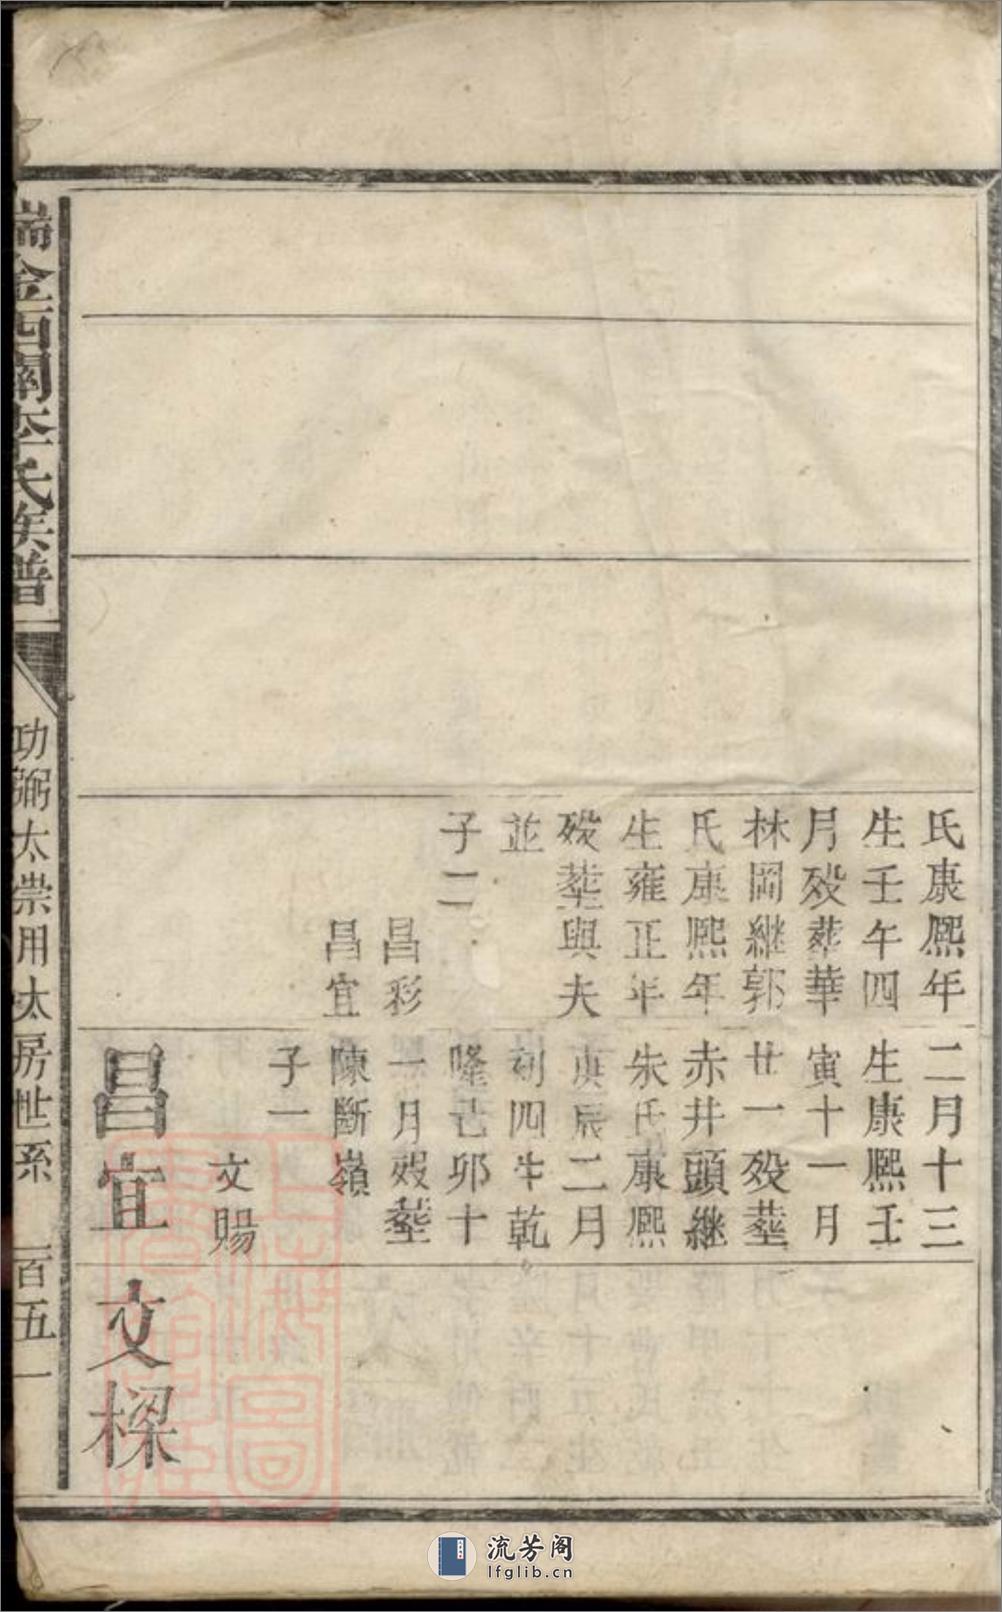 氏康熙年
生壬午四
月歿葬華
林岡繼郭
氏康熙年
生雍正年
歿塟與夫
並
子二
昌彩
昌宜
二月十三
生康熙壬
寅十一月
廿一歿塟
赤井頭繼
朱氏康熙
庚辰二月
初四生乾
隆己卯十
一月歿塟
陳斷嶺
子一
文賜
昌宜
文樑
瑞金西關李氏族譜
功弼太崇用太房世系
一百五一
流芳阁
lfglib.cn